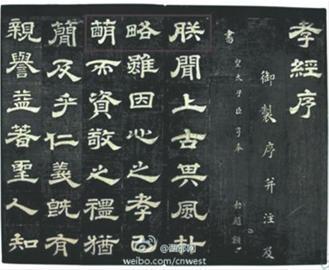 孝經序
御製序并注及
書
皇太子臣亨奉 勑題額
朕聞上古其風朴
略雖因心之孝已
萌而資敬之禮猶
簡及乎仁義既有
親譽益著聖人知
@西部网
weibo.com/cnwest